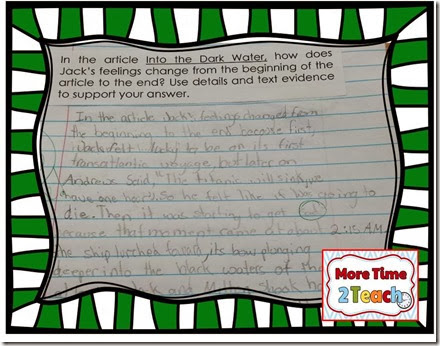 In the article Into the Dark Water, how does
Jack's feelings change from the beginning of the
article to the end? Use details and text evidence
to support your answer.
In the article Jack's feelings changed from
the beginning to the end because first,
Jack felt lucky to be on its first
transatlantic voyage, but later on
Andrews said, "The Titanic will sink. We
have one hour. So he felt like is going to
die. Then it was starting to get
because that moment came at about 2:15 A.M.
the ship lurched forward, its bow plunging
deeper into the black waters of the
and Milton shook
More Time
2Teach